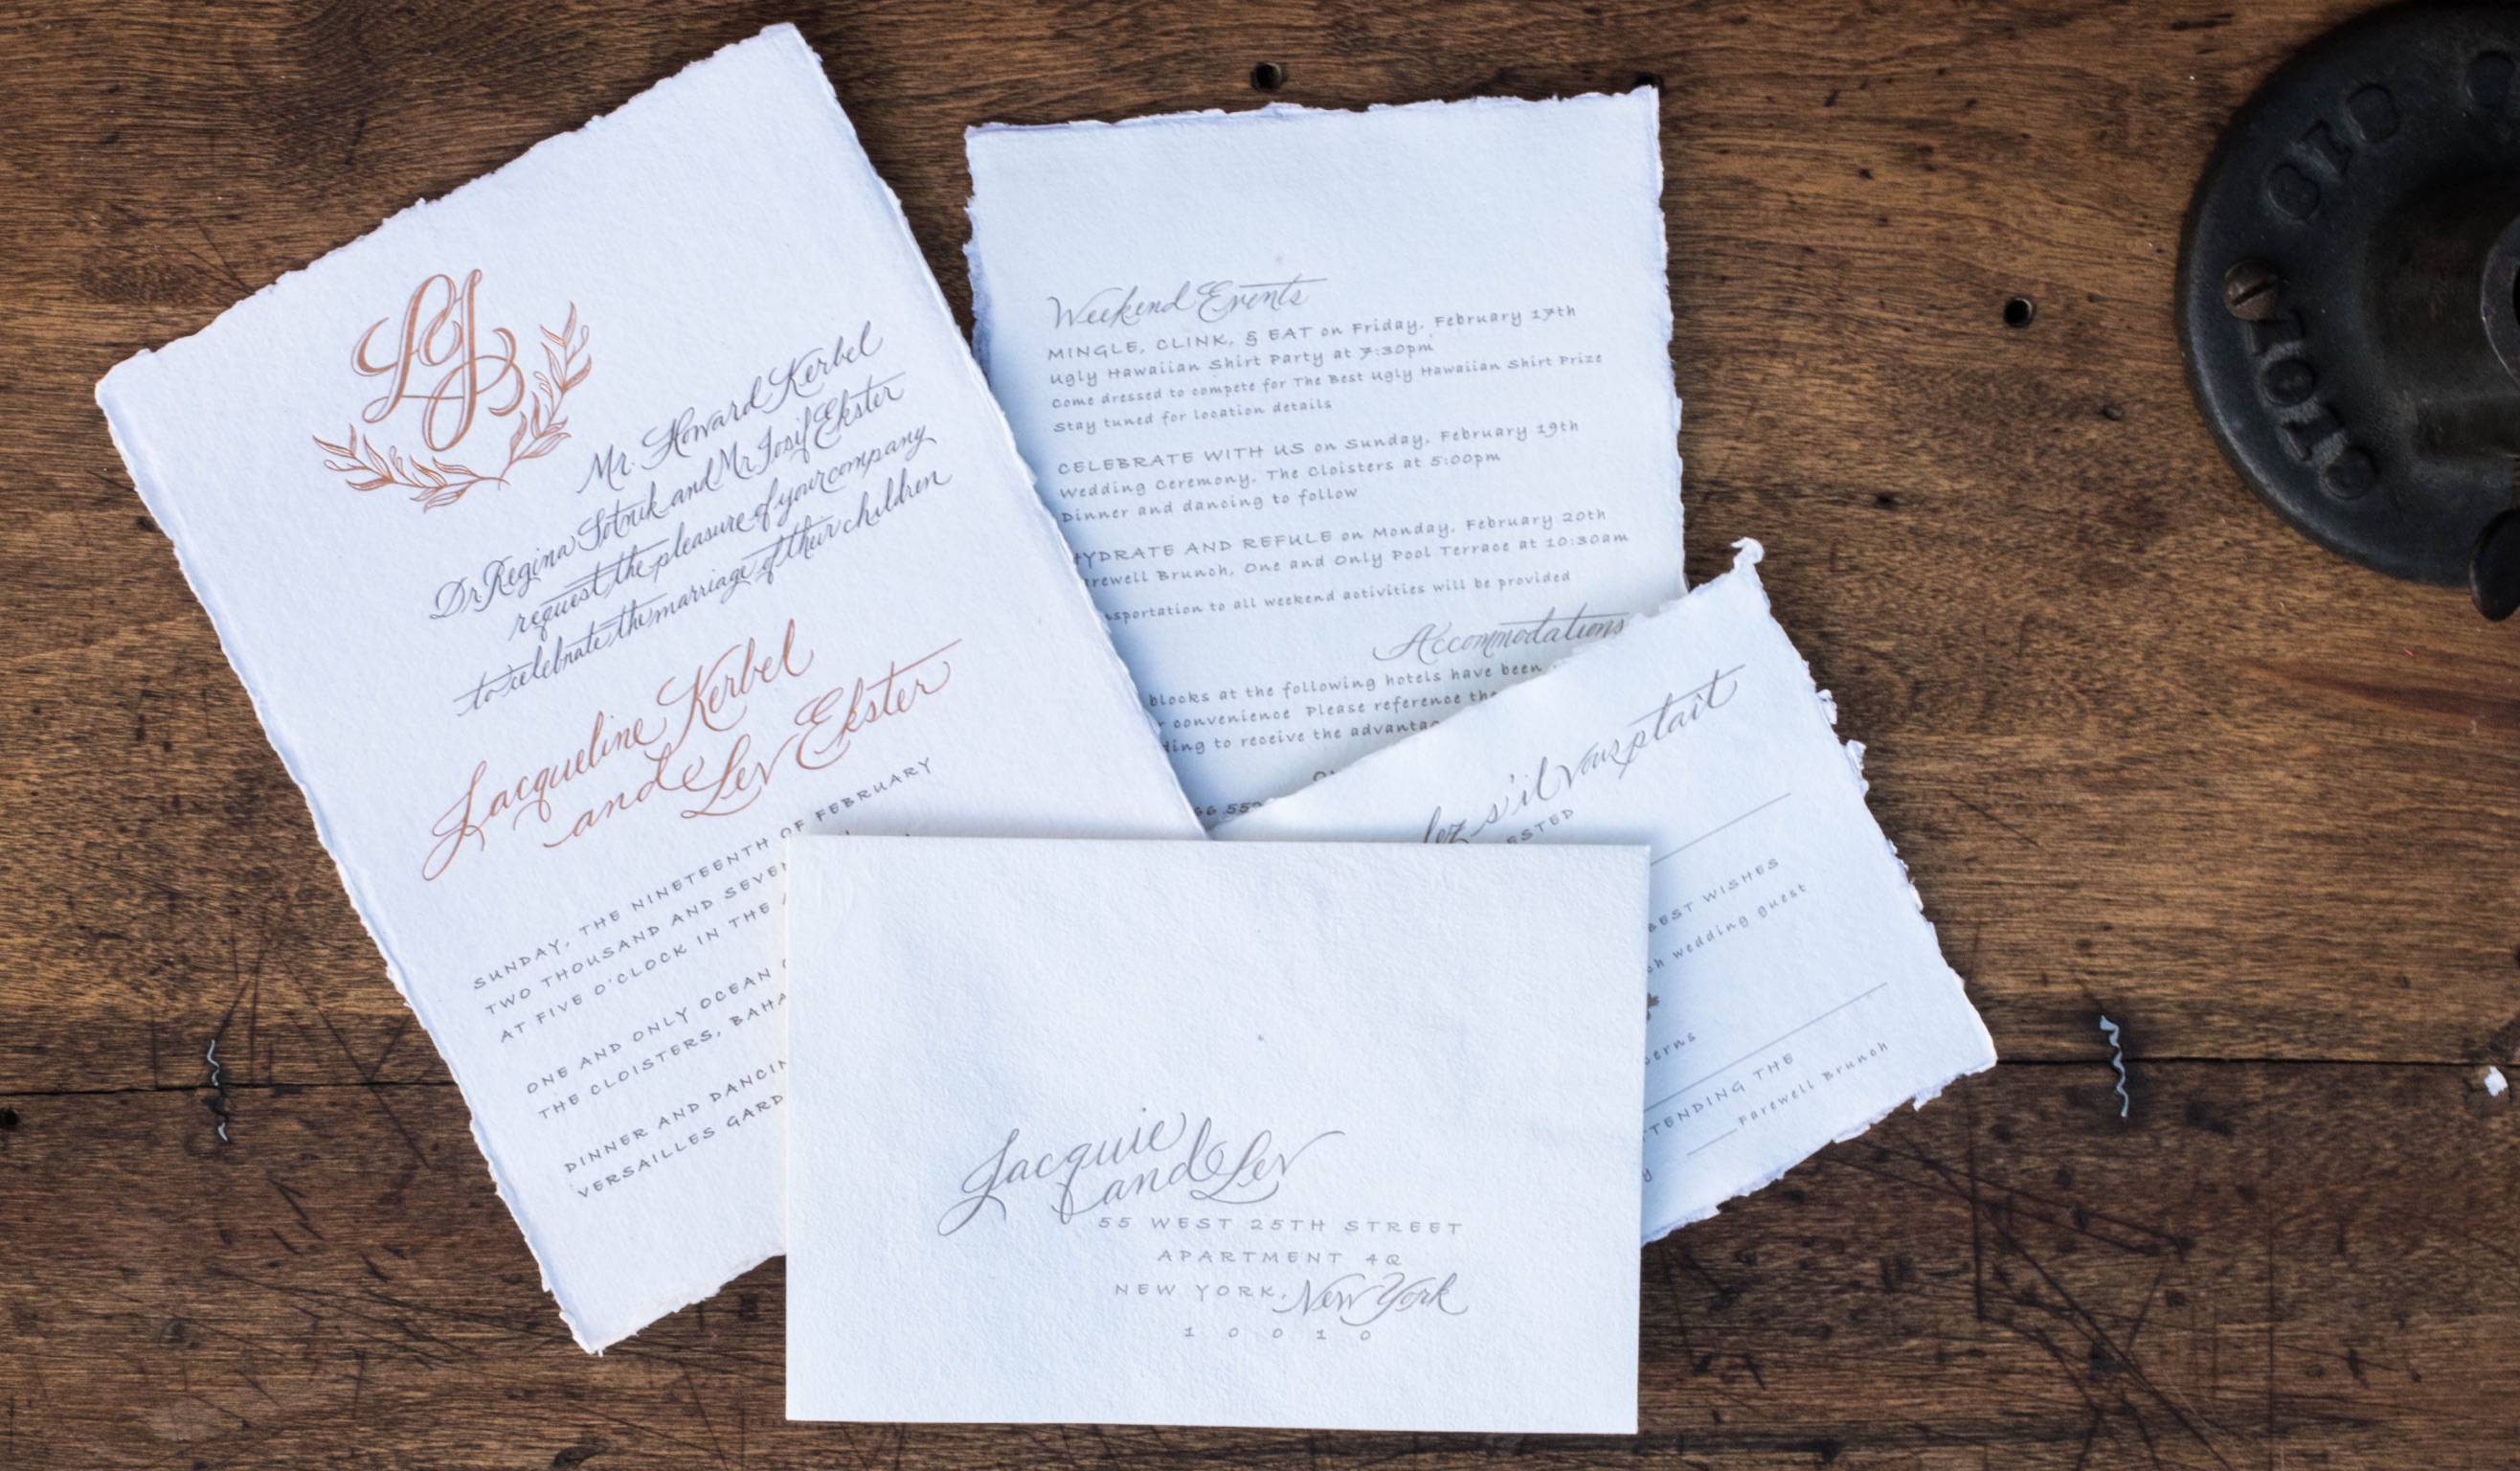 LJ
Mr. Howard Kerbel
Dr Regina Sotnik and Mr Iosif Ekster
request the pleasure of your company
to celebrate the marriage of their children
Jacqueline Kerbel
and Lev Ekster
SUNDAY, THE NINETEENTH OF FEBRUARY
TWO THOUSAND AND SEVEN
AT FIVE O'CLOCK IN THE
ONE AND ONLY OCEAN
THE CLOISTERS, BAHA
DINNER AND DANCIN
VERSAILLES GARD
Weekend Events
MINGLE, CLINK, & EAT on Friday, February 17th
Ugly Hawaiian Shirt Party at 7:30pm
Come dressed to compete for The Best Ugly Hawaiian Shirt Prize
Stay tuned for location details
CELEBRATE WITH US on Sunday, February 19th
Wedding Ceremony, The Cloisters at 5:00pm
Dinner and dancing to follow
HYDRATE AND REFULE on Monday, February 20th
rewell Brunch, One and Only Pool Terrace at 10:30am
nsportation to all weekend activities will be provided
Accommodations
blocks at the following hotels have been
r convenience Please reference the
ding to receive the advantag
66.552
lez s'il vous plait
ESTED
BEST WISHES
ch wedding guest
erns
TENDING THE
Farewell Brunch
y
Jacquie
and Lev
55 WEST 25TH STREET
APARTMENT 4Q
NEW YORK, New York
10010